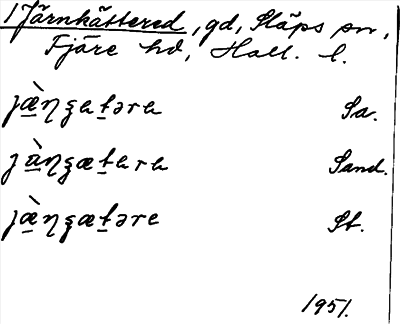 1 Järnkättered, gd, Släps sn,
Fjäre hd, Hall. l.
jæ̀ŋgatəra Sa.
jàŋgætara Sand.
jæ̀ŋgætəre St.
1951.